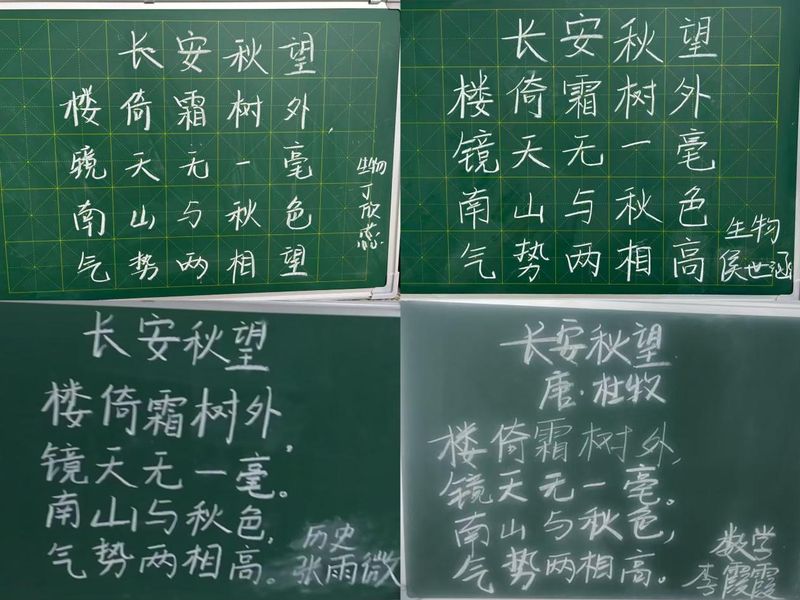 长安秋望
楼倚霜树外，
镜天无一毫
南山与秋色
气势两相望
生物
丁欣
长安秋望
楼倚霜树外
镜天无一毫
南山与秋色
气势两相高
生物
侯世涵
长安秋望
楼倚霜树外，
镜天无一毫。
南山与秋色，
气势两相高。
历史
张雨微
长安秋望
唐·杜牧
楼倚霜树外，
镜天无一毫。
南山与秋色，
气势两相高。
数学
李霞霞